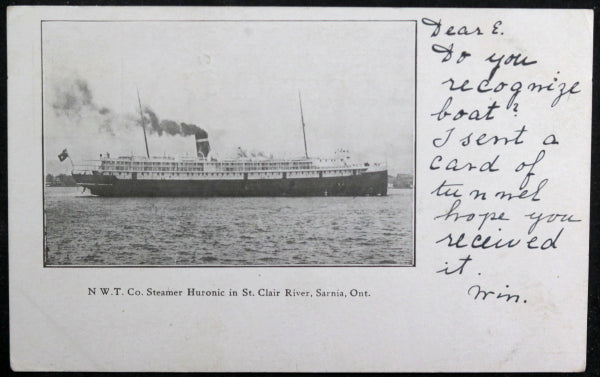 Dear E.
Do you
recognize
boat?
I sent a
card of
tunnel
hope you
received
it.
Win.
N W. T. Co. Steamer Huronic in St. Clair River, Sarnia, Ont.